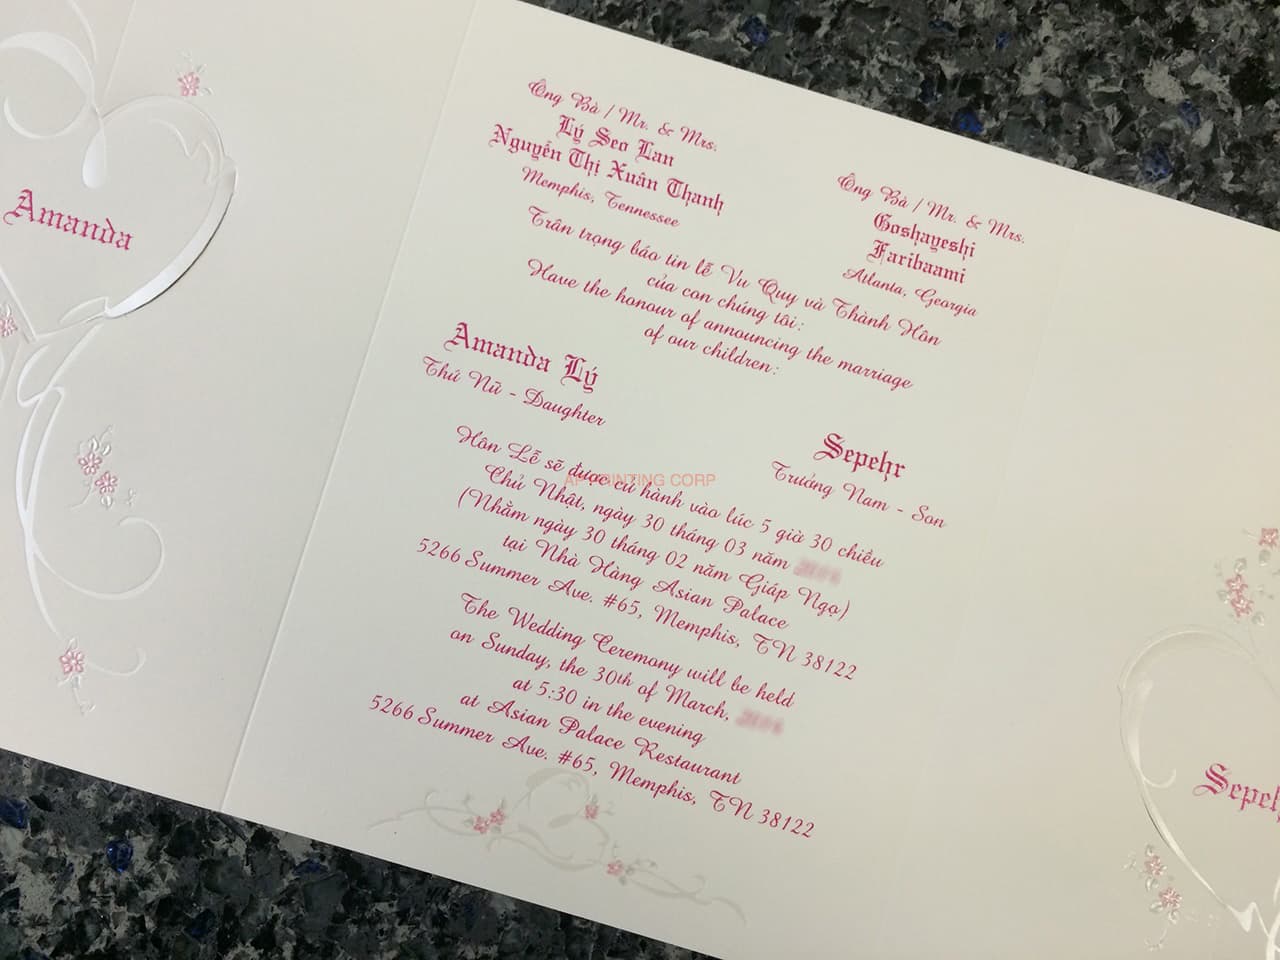 Amanda
Ông Bà / Mr. & Mrs.
Lý Seo Lan
Nguyễn Thị Xuân Thanh
Memphis, Tennessee
Ông Bà / Mr. & Mrs.
Goshayeshi
Faribaami
Atlanta, Georgia
Trân trọng báo tin lễ Vu Quy và Thành Hôn
của con chúng tôi:
Have the honour of announcing the marriage
of our children:
Amanda Lý
Thứ Nữ - Daughter
Sepehr
Trưởng Nam - Son
Hôn Lễ sẽ được cử hành vào lúc 5 giờ 30 chiều
Chủ Nhật, ngày 30 tháng 03 năm
(Nhằm ngày 30 tháng 02 năm Giáp Ngọ)
tại Nhà Hàng Asian Palace
5266 Summer Ave. #65, Memphis, TN 38122
The Wedding Ceremony will be held
on Sunday, the 30th of March,
at 5:30 in the evening
at Asian Palace Restaurant
5266 Summer Ave. #65, Memphis, TN 38122
Sepehr
AP PRINTING CORP